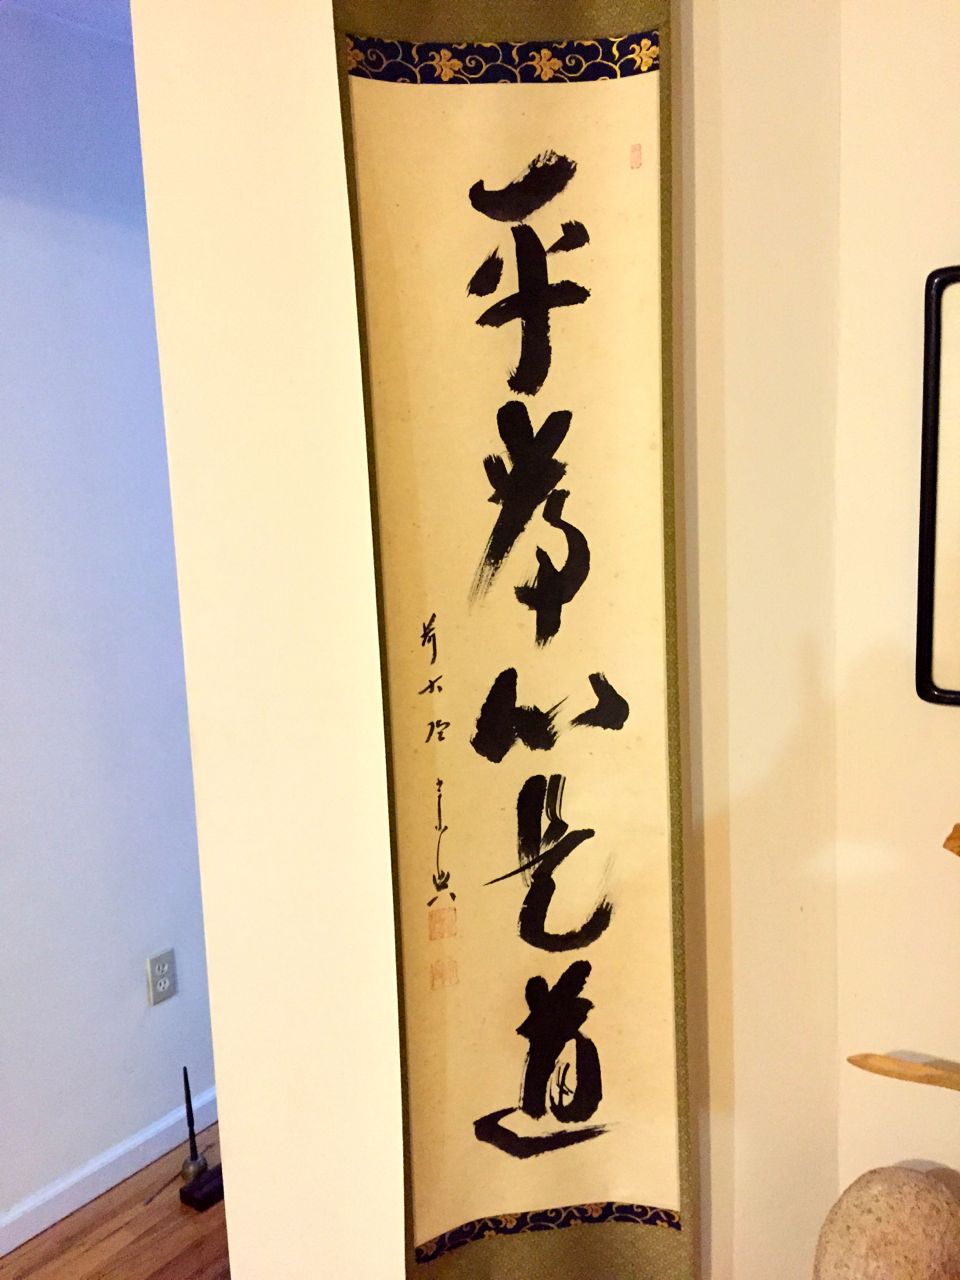 平常心是道
前大徳